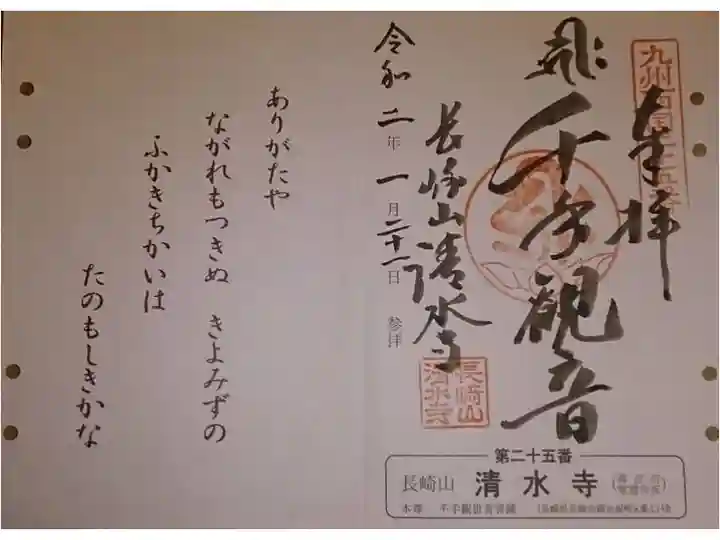 九州西国二十五番
奉拝
千手観音
長崎山清水寺
長崎山
清水寺
令和二年一月二十一日 参拝
ありがたや
ながれもつきぬ きよみずの
ふかきちかいは
たのもしきかな
第二十五番
長崎山 清水寺
本尊 千手観世音菩薩